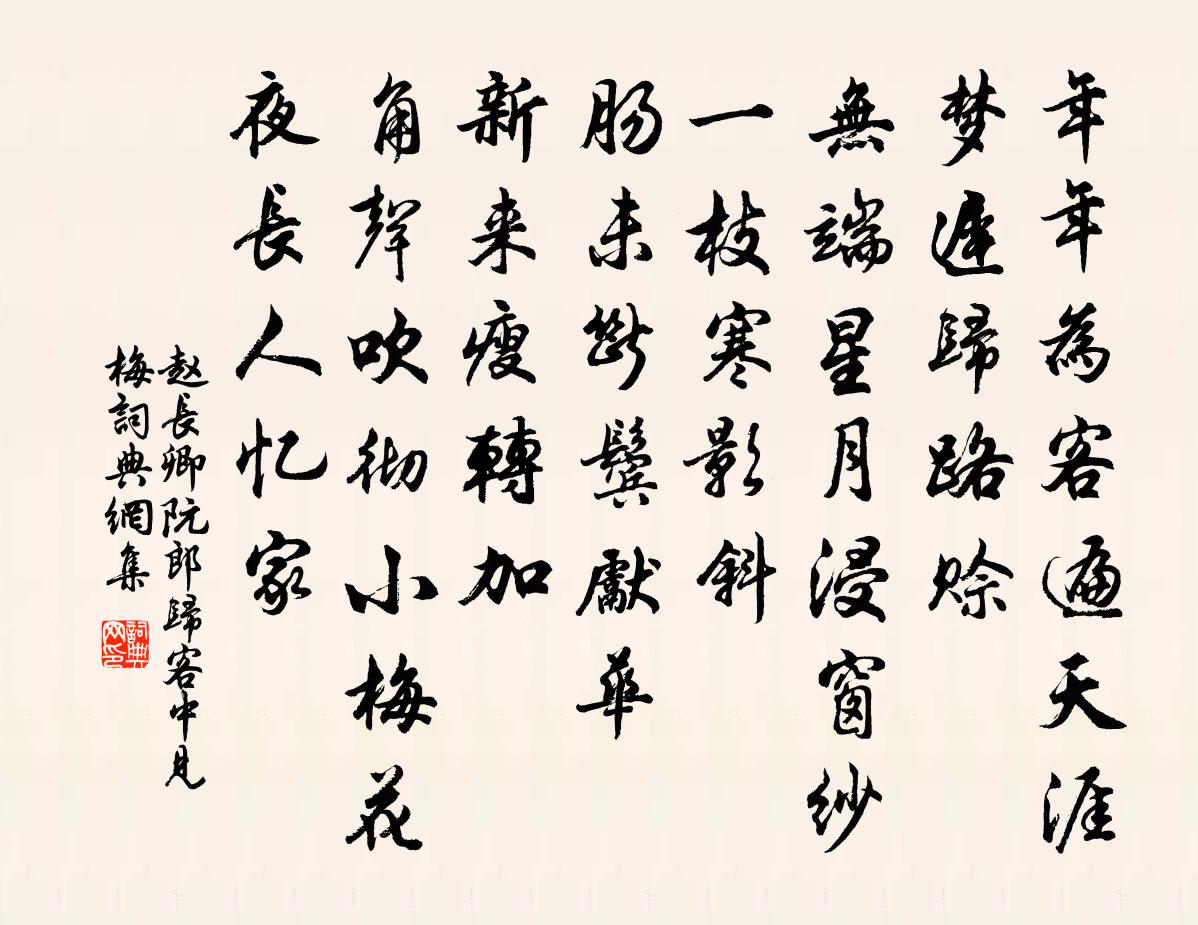 年年為客遍天涯
梦遲歸路赊
無端星月浸窗紗
一枝寒影斜
肠未斷鬓獻華
新来瘦轉加
角聲吹彻小梅花
夜長人忆家
赵長卿阮郎歸客中見
梅詞典網集
詞典网印